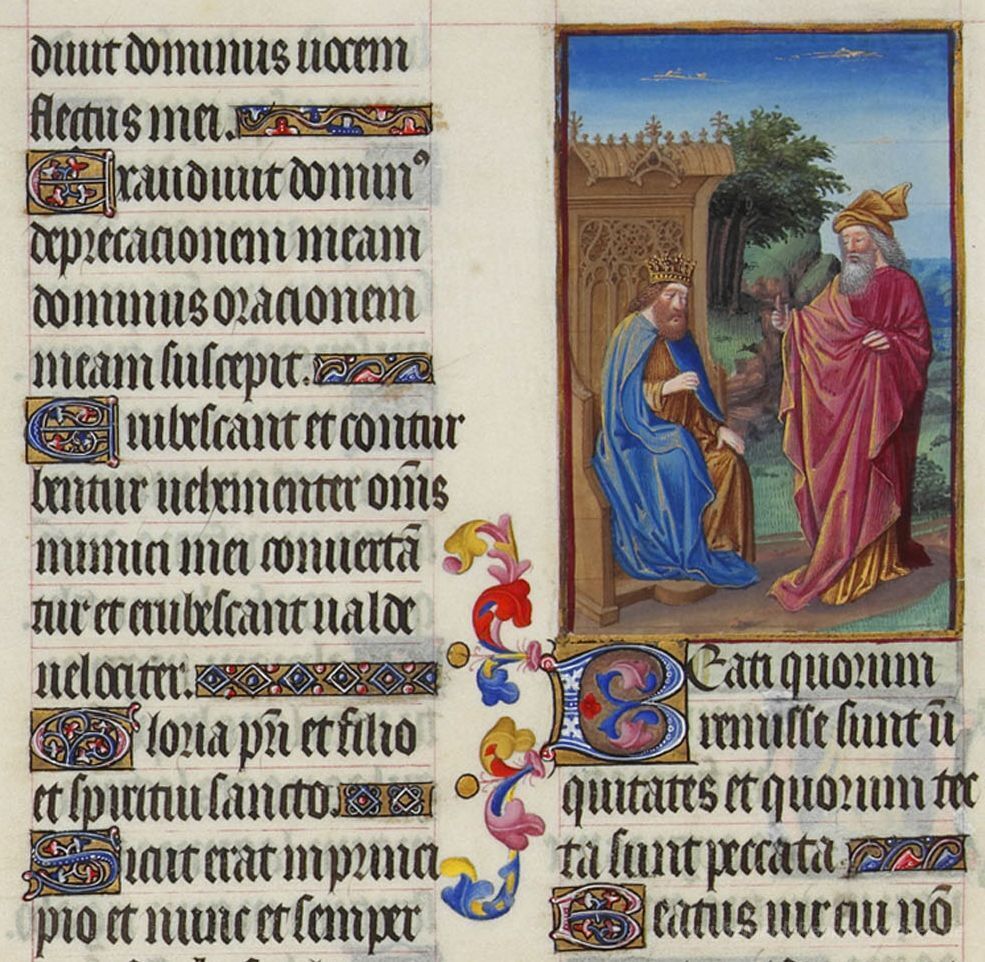 diuit dominus uocem
flectus mei.
Exaudiuit dominꝰ
deprecacionem meam
dominus oracionem
meam suscepit.
Erubescant et contur
bentur uehementer om̄s
inimici mei conuertā
tur et erubescant ualde
uelociter.
Gloria pr̄i et filio
et spiritui sancto.
Sicut erat in princi
pio et nunc et semper
Beati quorum
remisse sunt īi
quitates et quorum tec
ta sunt peccata.
Beatus uir cui nō